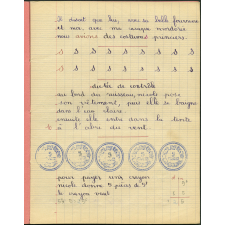 Il disait que lui, avec sa belle fourrure
nous avions des costumes princiers.
s s s s s s s s s
s s s s s s s s s
dictée de contrôle
au bord du ruisseau, nicole pose
son vêtement, puis elle se baigne
dans l'eau claire
ensuite elle entre dans la tente
à l'abri du vent.
5 5 5 5 5
pour payer un crayon
nicole donne 5 pièces de 5f
le crayon vaut